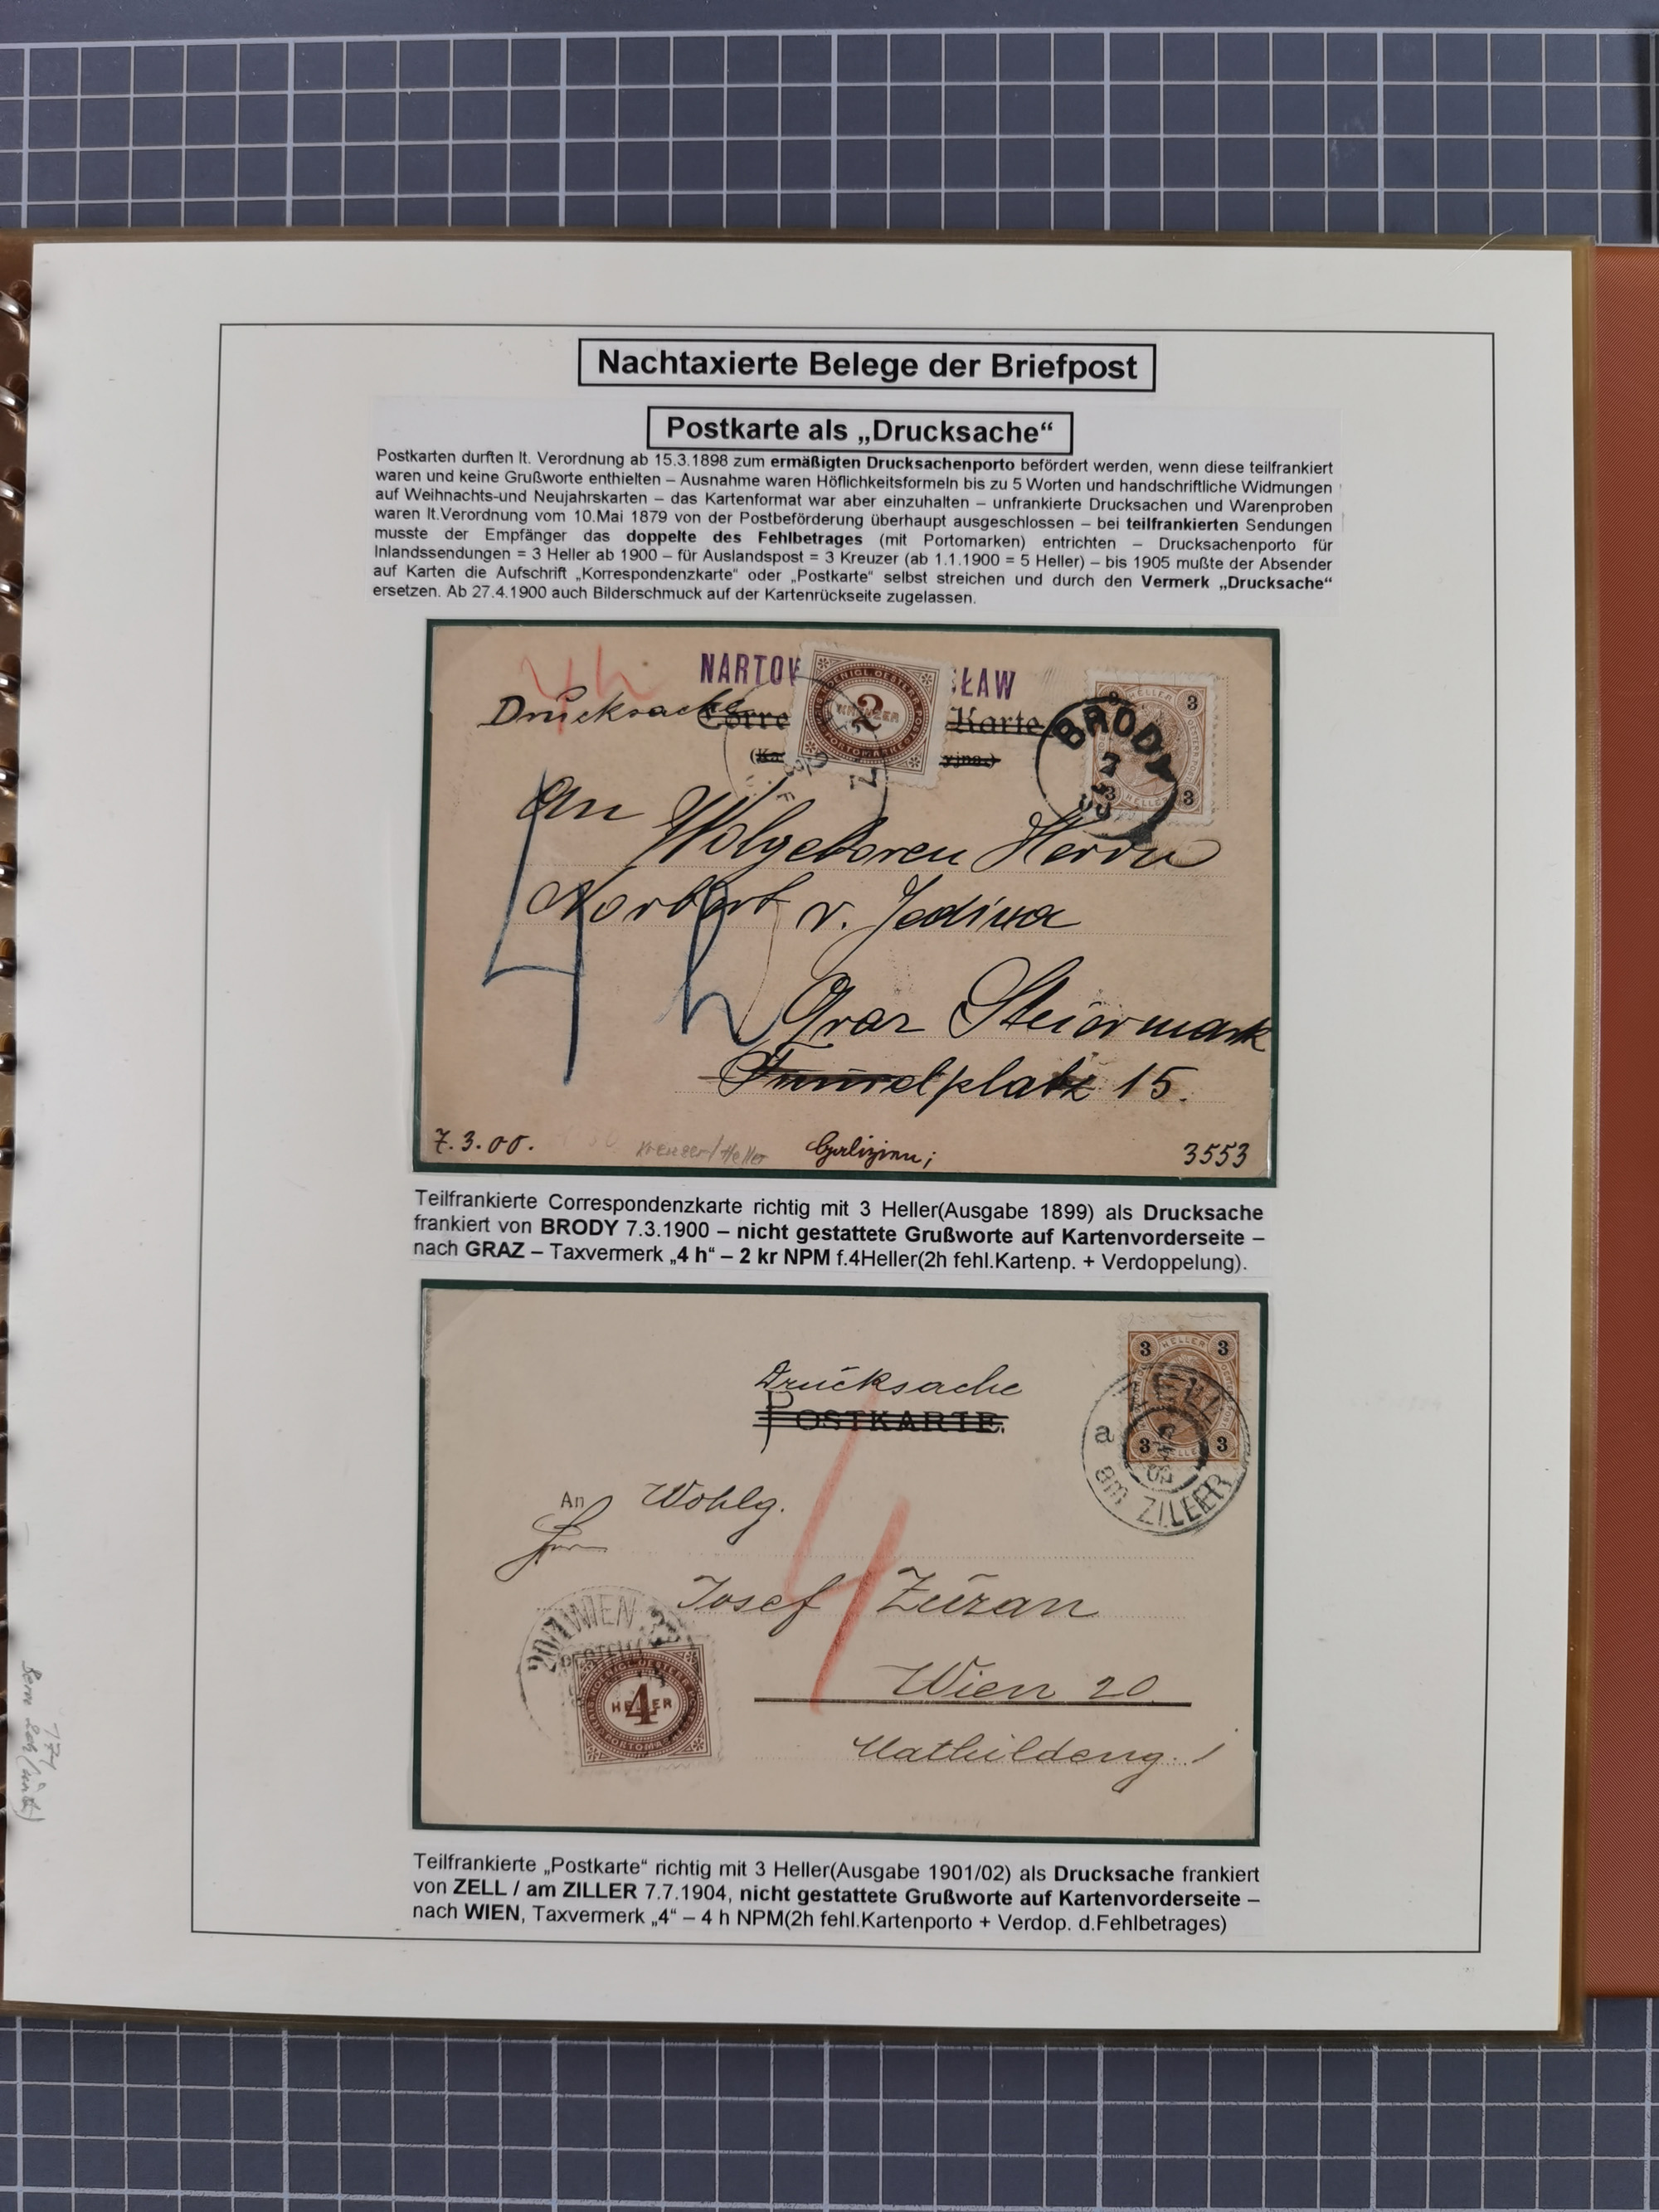 Nachtaxierte Belege der Briefpost
Postkarte als „Drucksache“
Postkarten durften lt. Verordnung ab 15.3.1898 zum ermäßigten Drucksachenporto befördert werden, wenn diese teilfrankiert
waren und keine Grußworte enthielten – Ausnahme waren Höflichkeitsformeln bis zu 5 Worten und handschriftliche Widmungen
auf Weihnachts-und Neujahrskarten – das Kartenformat war aber einzuhalten – unfrankierte Drucksachen und Warenproben
waren lt.Verordnung vom 10.Mai 1879 von der Postbeförderung überhaupt ausgeschlossen – bei teilfrankierten Sendungen
musste der Empfänger das doppelte des Fehlbetrages (mit Portomarken) entrichten – Drucksachenporto für
Inlandssendungen = 3 Heller ab 1900 – für Auslandspost = 3 Kreuzer (ab 1.1.1900 = 5 Heller) – bis 1905 mußte der Absender
auf Karten die Aufschrift „Korrespondenzkarte“ oder „Postkarte“ selbst streichen und durch den Vermerk „Drucksache“
ersetzen. Ab 27.4.1900 auch Bilderschmuck auf der Kartenrückseite zugelassen.
4h
NARTOW
SŁAW
Drucksache
Corre
Karte
2
KREUZER
BRODY
3 HELLER 3
3 HELLER 3
An
Wolgeboren Herrn
Norbert v. Jedina
4 h
Graz Steiermark
platz 15.
7.3.00.
Kreuzer/Heller
Galizien;
3553
Teilfrankierte Correspondenzkarte richtig mit 3 Heller(Ausgabe 1899) als Drucksache
frankiert von BRODY 7.3.1900 – nicht gestattete Grußworte auf Kartenvorderseite –
nach GRAZ – Taxvermerk „4 h“ – 2 kr NPM f.4Heller(2h fehl.Kartenp. + Verdoppelung).
Drucksache
POSTKARTE.
3 HELLER 3
3 HELLER 3
ZELL
a
am ZILLER
An Wohlg.
Josef Zuzan
4
WIEN
4
HELLER
Wien 20
Mathildeng. 1
Teilfrankierte „Postkarte“ richtig mit 3 Heller(Ausgabe 1901/02) als Drucksache frankiert
von ZELL / am ZILLER 7.7.1904, nicht gestattete Grußworte auf Kartenvorderseite –
nach WIEN, Taxvermerk „4“ – 4 h NPM(2h fehl.Kartenporto + Verdop. d.Fehlbetrages)